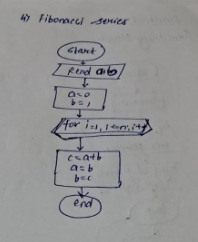 4) Fibonacci series
Start
Read a,b
a=0
b=1
for i=1, i<=n, i++
c=a+b
a=b
b=c
End